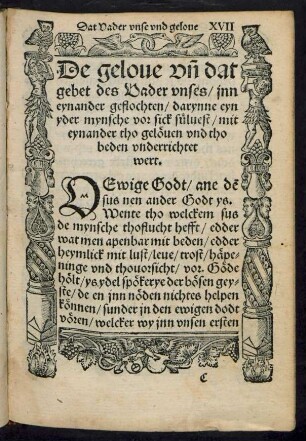 Dat Vader vnse vnd geloue XVII
De geloue vñ dat
gebet des Vader vnses/ jnn
eynander geflochten/ darynne eyn
yder mynsche vor sick súluest/ mit
eynander tho gelöuen vnd tho
beden vnderrichtet
wert.
O Ewige Godt/ ane dē
sus nen ander Godt ys.
Wente tho welckem sus
de mynsche thoflucht hefft/ edder
wat men apenbar mit beden/ edder
heymlick mit lust/ leue/ trost/ häpe-
ninge vnd thouorsicht/ vor Gade
hölt/ ys ydel spökerye der bösen gey-
ste/ de en jnn nöden nichtes helpen
können/ sunder jn den ewigen dodt
vören/ welcker wy jnn vnsen ersten
C